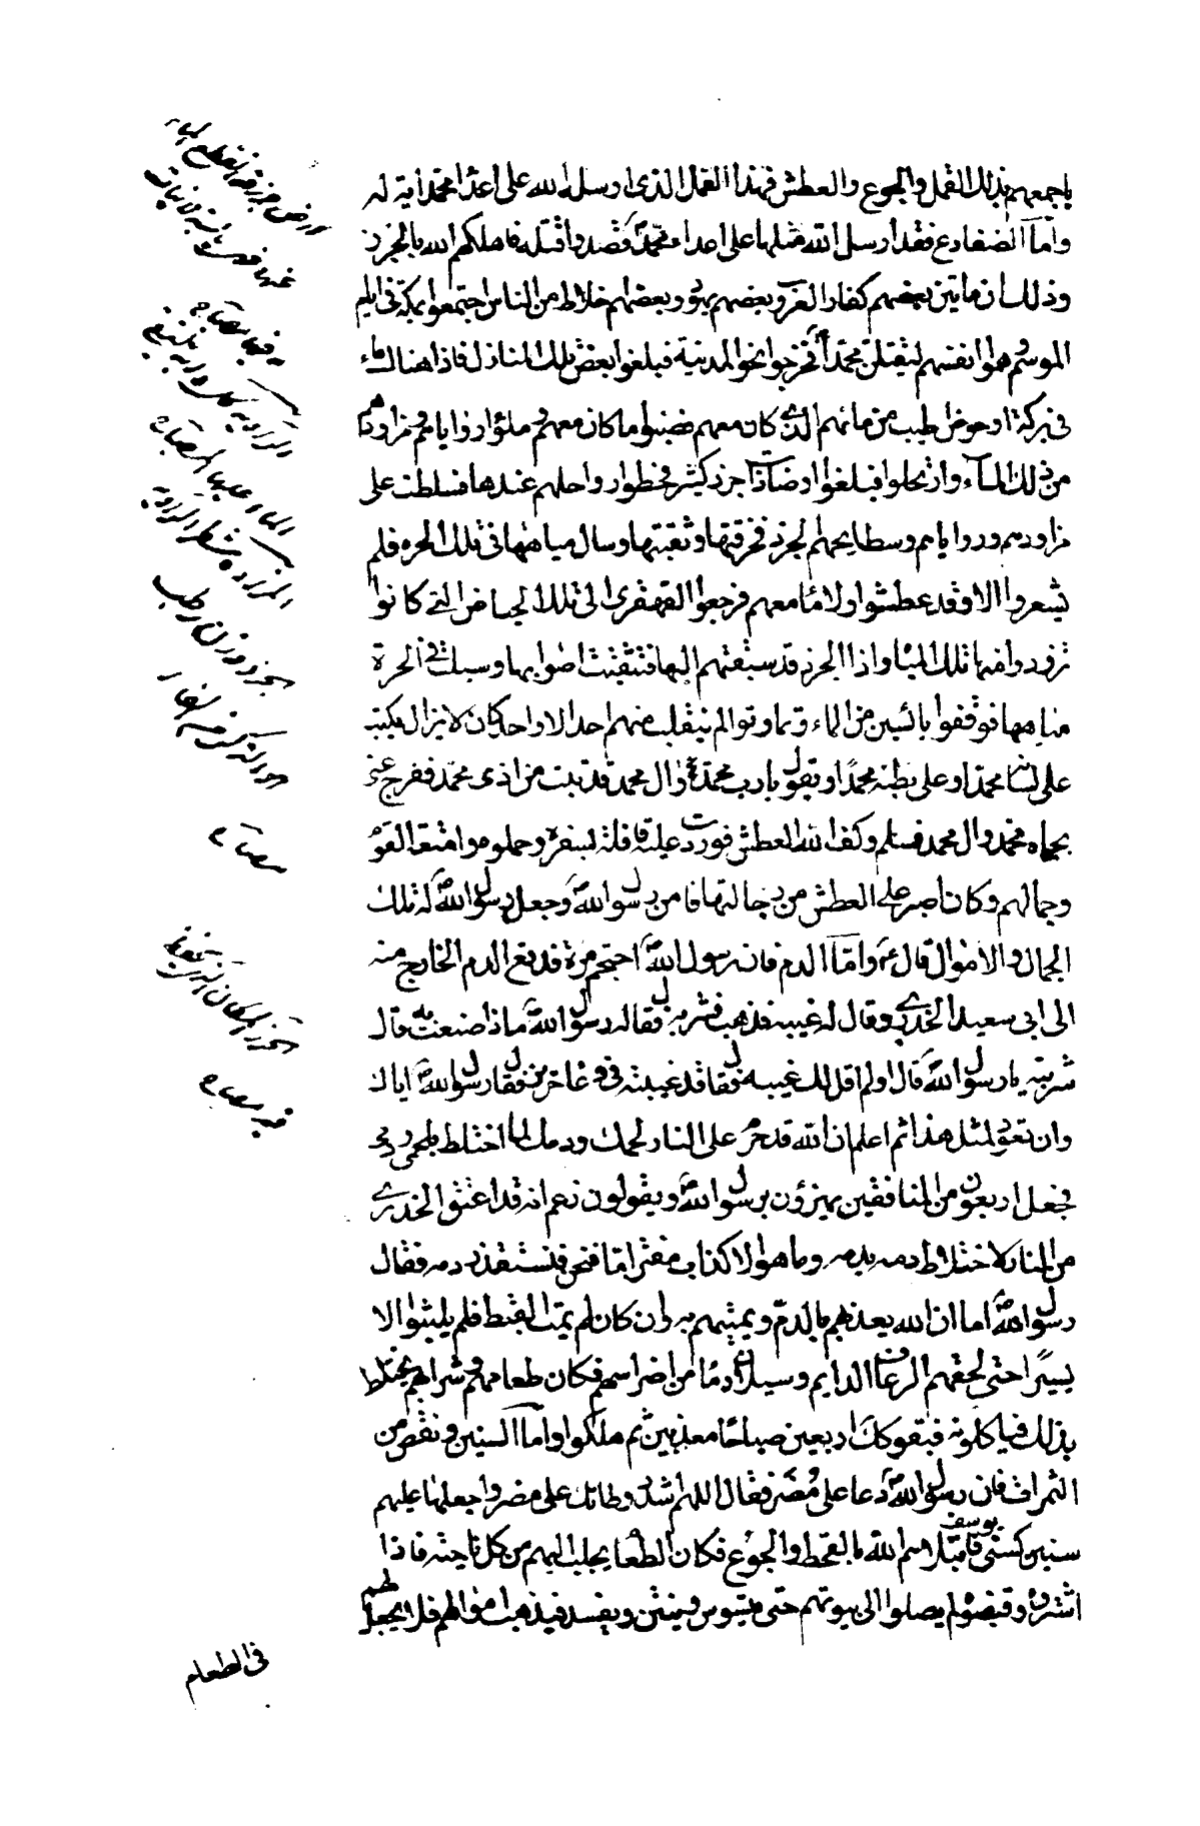 باجمعهم بذلك القمل والجوع والعطش فهذا القمل الذى ارسل الله على اعداء محمد اية له
واما الضفادع فقد ارسل الله مثلها على اعداء محمدؐ قصدوا قتله فاهلكهم الله بالجرذ
وذلك ان ماتين بعضهم كفار العرب وبعضهم يهود وبعضهم خلاط من الناس اجتمعوا بمكة فى ايام
الموسم وهموا انفسهم ليقتلن محمدا فخرجوا نحو المدينة فبلغوا بعض تلك المنازل فاذا هناك ماء
فى بركة او حوض اطيب من مائهم الذى كان معهم فصبوا ما كان معهم وملؤا رواياهم ومزاودهم
من ذلك الماء وارتحلوا فبلغوا ارضا ذات جرذ كثير فحطوا رواحلهم عندها فسلطت على
مزاودهم ورواياهم وسطايحهم الجرذ فخرقتها وثقبتها وسال مياهها فى تلك الحرة فلم
يشعروا الا وقد عطشوا ولا ماء معهم فرجعوا القهقرى الى تلك الحياض التى كانوا
تزودوا منها تلك المياه واذا الجرذ قد سبقتهم اليها فثقبت اصولها وسيلت فى الحرة
مياهها فوقفوا يائسين من الماء وتماوتوا لم ينقلب منهم احد الا واحد كان لا يزال يكتب
على لسانه محمدا وعلى بطنه محمدا ويقول يا رب محمد وال محمد قد تبت من اذى محمد ففرج عنى
بجاه محمد وال محمد فسلم وكف الله العطش فوردت عليه قافلة فسقوه وحملوه وامتعة القوم
وجمالهم وكان اصبر على العطش من رجالها فامن برسول اللهؐ وجعل رسول اللهؐ له تلك
الجمال والاموال قال ع واما الدم فان رسول اللهؐ احتجم مرة فدفع الدم الخارج منه
الى ابى سعيد الخدرى وقال له غيبه فذهب فشربه فقال له رسول اللهؐ ماذا صنعت به قال
شربته يا رسول اللهؐ قال اولم اقل لك غيبه فقال قد غيبته فى وعاء حريز فقال رسول اللهؐ اياك
وان تعود لمثل هذا ثم اعلم ان الله قد حرم على النار لحمك ودمك لما اختلط بلحمى ودمى
فجعل اربعون من المنافقين يهزؤن برسول اللهؐ ويقولون زعم انه قد اعتق الخدرى
من النار لاختلاط دمه بدمه وما هو الا كذاب مفتر اما نحن فنستقذر دمه فقال
رسول اللهؐ اما ان الله يعذبهم بالدم ويميتهم به وان كان لم يمت القبط فلم يلبثوا الا
يسيرا حتى لحقهم الرعاف الدايم وسيلان دماء من اضراسهم فكان طعامهم وشرابهم يختلط
بذلك فياكلونه فبقوا كذلك اربعين صباحا معذبين ثم هلكوا واما السنين ونقص من
الثمرات فان رسول اللهؐ دعا على مضر فقال اللهم اشدد وطاتك على مضر واجعلها عليهم
سنين كسنى يوسف فابتلاهم الله بالقحط والجوع فكان الطعام يجلب اليهم من كل ناحية فاذا
اشتروه وقبضوه لم يصلوا الى بيوتهم حتى يتسوس وينتن ويفسد فيذهب اموالهم فلا يجعل لهم
فى الطعام